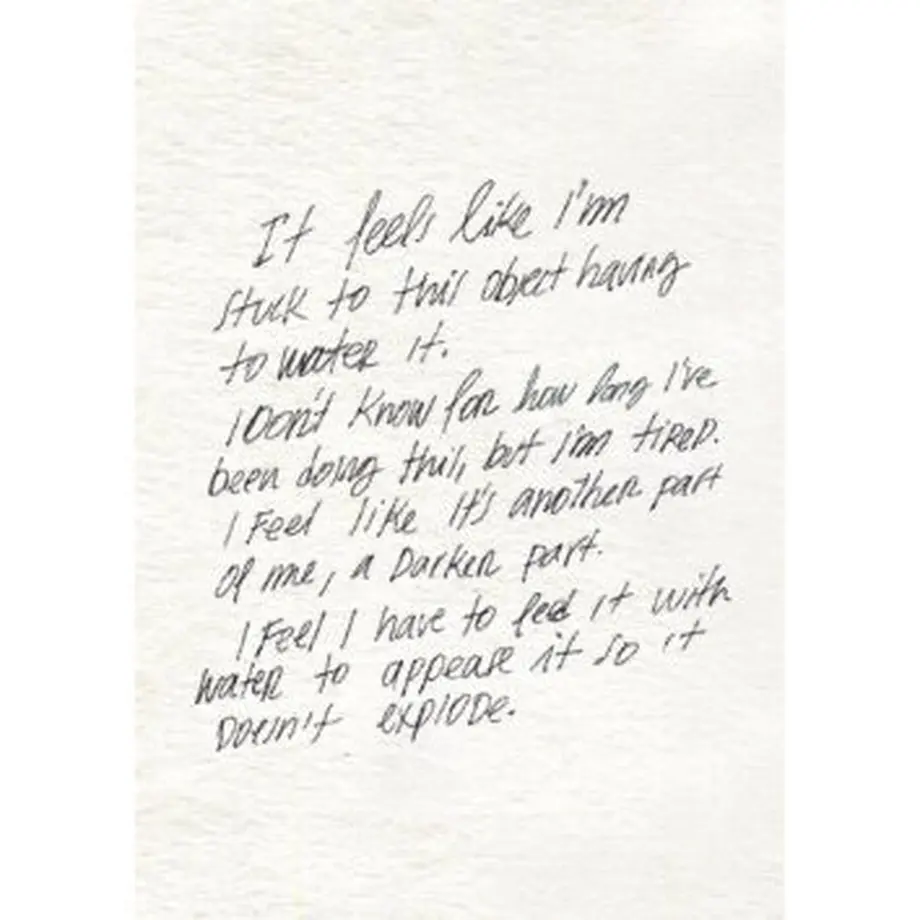 It feels like I'm
stuck to this object having
to water it.
I Don't Know for how long I've
been doing this, but I'm tired.
I Feel like It's another part
of me, a Darker part.
I Feel I have to feed it with
water to appease it so it
Doesn't explode.